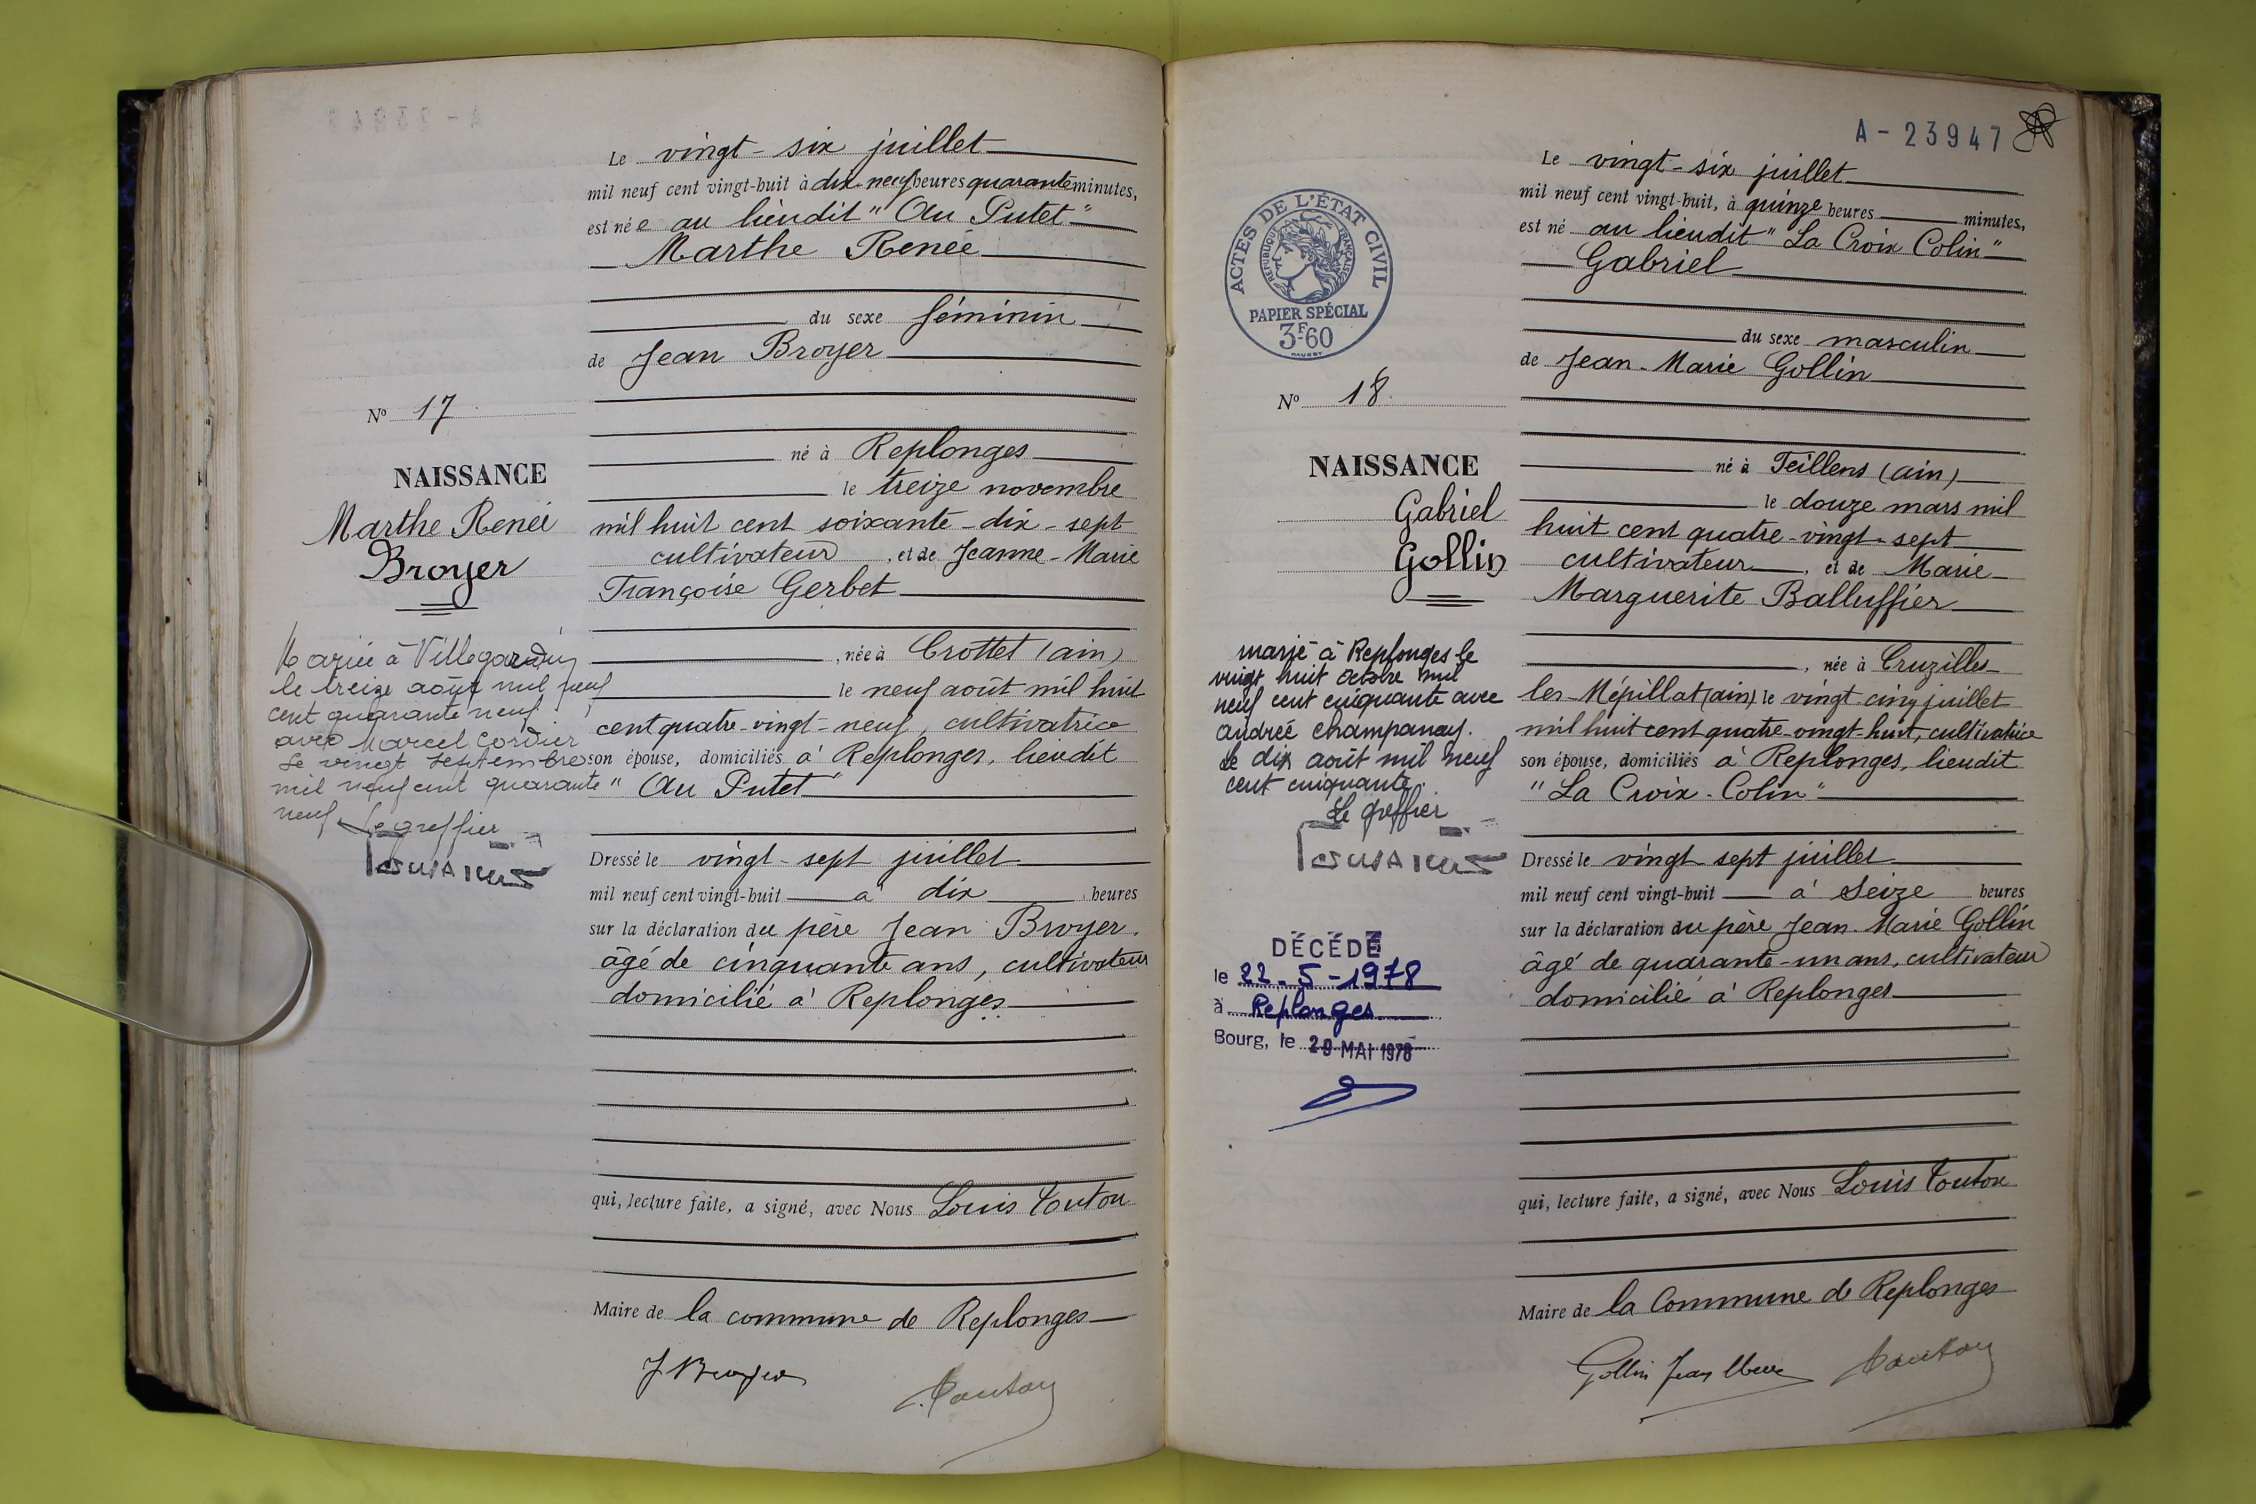 Le vingt-six juillet
mil neuf cent vingt-huit à dix-neuf heures quarante minutes,
est né e au lieudit "Au Putet"
Marthe Renée
du sexe féminin
de Jean Broyer
né à Replonges
le treize novembre
mil huit cent soixante-dix-sept
cultivateur, et de Jeanne-Marie
Françoise Gerbet
, née à Crottet (ain)
le neuf août mil huit
cent quatre-vingt-neuf, cultivatrice
son épouse, domiciliés à Replonges, lieudit
"Au Putet"
Dressé le vingt-sept juillet
mil neuf cent vingt-huit à dix heures
sur la déclaration du père Jean Broyer.
âgé de cinquante ans, cultivateur
domicilié à Replonges
qui, lecture faite, a signé, avec Nous Louis Touton
Maire de la commune de Replonges
J Broyer
Touton
No 17
NAISSANCE
Marthe Renée
Broyer
Mariée à Villegardin
le treize août mil neuf
cent quarante neuf
avec Marcel Cordier
Le vingt septembre
mil neuf cent quarante
neuf Le greffier
A-23947
Le vingt-six juillet
mil neuf cent vingt-huit, à quinze heures minutes,
est né au lieudit "La Croix Colin"
Gabriel
du sexe masculin
de Jean-Marie Gollin
né à Feillens (ain)
le douze mars mil
huit cent quatre-vingt-sept
cultivateur, et de Marie
Marguerite Balluffier
, née à Cruzilles
les-Mépillat (ain) le vingt-cinq juillet
mil huit cent quatre-vingt-huit, cultivatrice
son épouse, domiciliés à Replonges, lieudit
"La Croix-Colin"
Dressé le vingt sept juillet
mil neuf cent vingt-huit à seize heures
sur la déclaration du père Jean-Marie Gollin
âgé de quarante-un ans, cultivateur
domicilié à Replonges
qui, lecture faite, a signé, avec Nous Louis Touton
Maire de la Commune de Replonges
Gollin Jean Marie
Touton
ACTES DE L'ÉTAT CIVIL
RÉPUBLIQUE FRANÇAISE
PAPIER SPÉCIAL
3F60
No 18
NAISSANCE
Gabriel
Gollin
marié à Replonges le
vingt huit octobre mil
neuf cent cinquante avec
andrée champanay.
Le dix août mil neuf
cent cinquante.
Le greffier
DÉCÉDÉ
le 22-5-1978
à Replonges
Bourg, le 29 MAI 1978